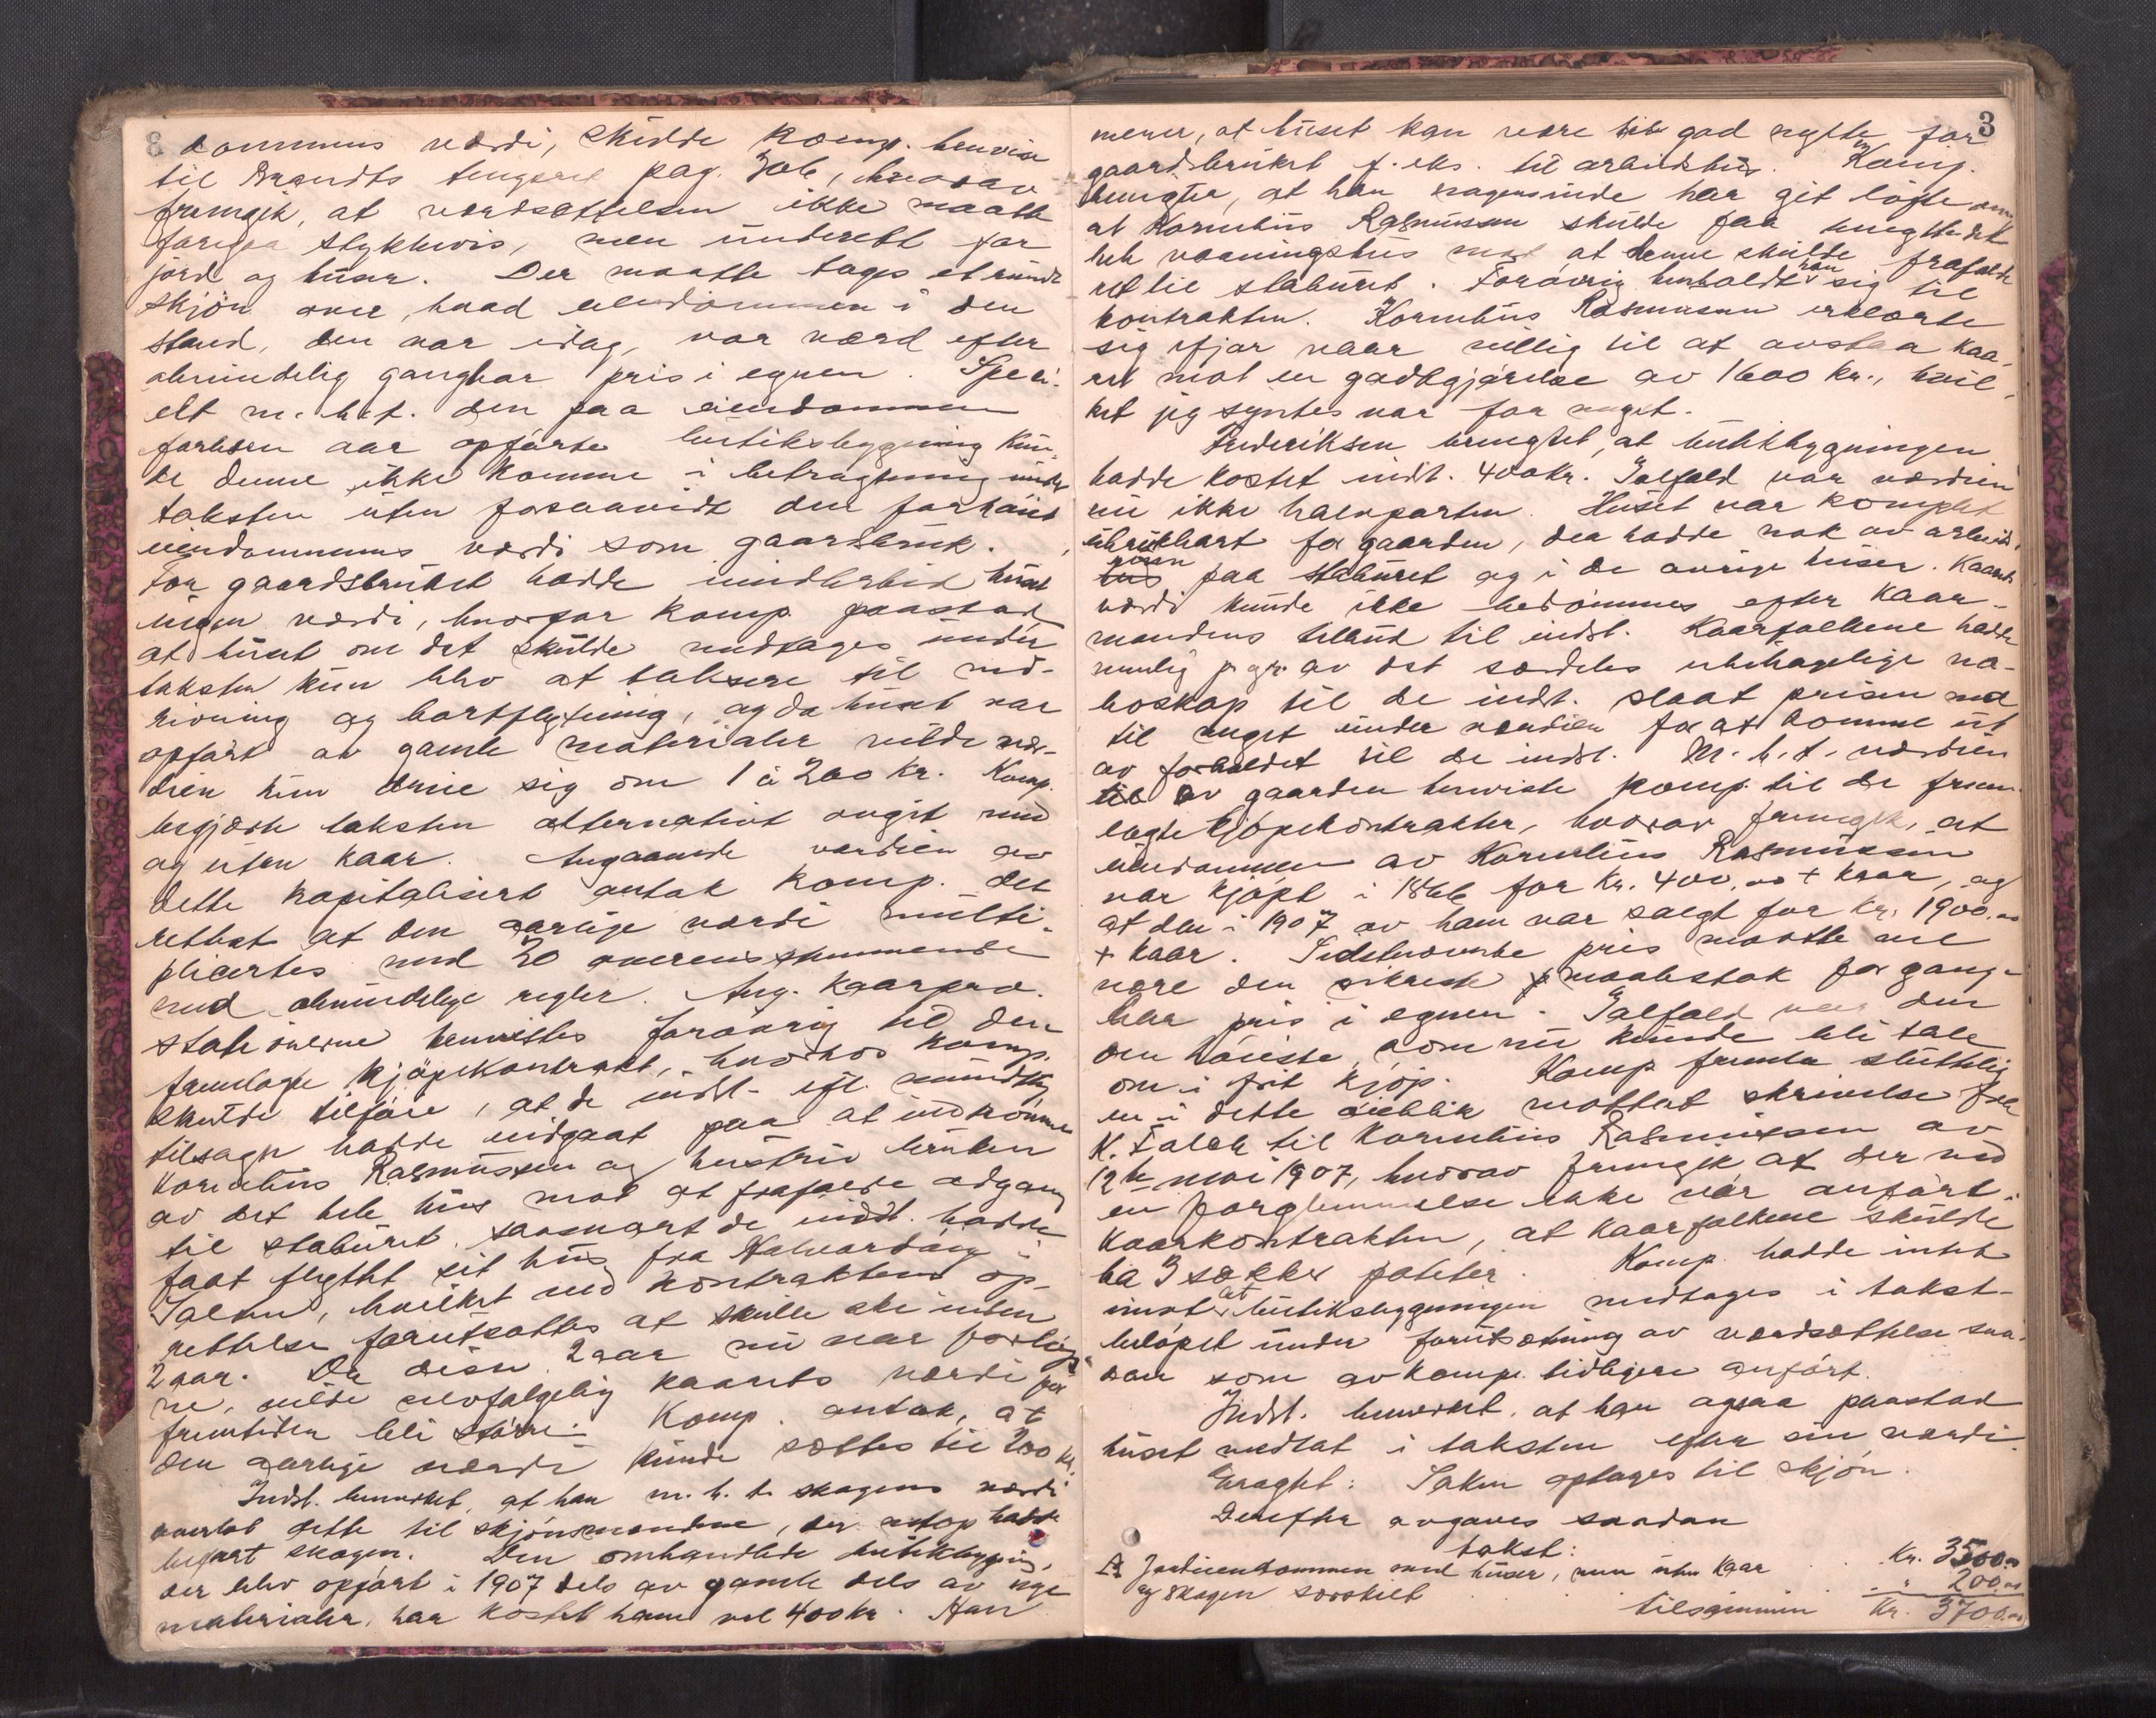 8
dommens værdi, skulde komp. henvise
til Brandts tingsret pag. 306, hvorav
fremgik, at værdsættelsen ikke maatte
foregaa stykkevis, men underett for
jord og huser. Der maatte tages et rundt
skjøn over, hvad eiendommen i den
stand, den var idag, var værd efter
almindelig gangbar pris i egnen. Speci-
elt m. h. t. den paa eiendommen
forleden aar opførte butiksbygning kun-
de denne ikke komme i betragtning under
taksten uten forsaavidt den forhøiet
eiendommens værdi som gaardsbruk.
For gaardsbruket hadde imidlertid huset
ingen værdi, hvorfor komp. paastod,
at huset om det skulde medtages under
taksten kun blev at taksere til ned-
rivning og bortflytning, og da huset var
opført av gamle materialer vilde vær-
dien kun dreie sig om 1 à 200 kr. Komp.
begjærte taksten alternativt avgit med
og uten kaar. Angaaende værdien av
dette kapitalisert antok komp. det
rettest at den aarlige værdi multi-
pliceres med 20 overensstemmende
med almindelige regler. Ang. kaarpræ-
stationerne henvistes forøvrig til den
fremlagte kjøpekontrakt, hvorhos komp.
skulde tilføie, at de indst. ifl. mundtlig
tilsagn hadde indgaat paa at indrømme
Kornelius Rasmussen og hustru bruken
av det hele hus mot at frafalde adgang
til staburet, saasnart de indst. hadde
faat flyttet sit hus fra Halvardsøy i
Dalen, hvilket ved kontraktens op-
rettelse forutsattes at skulle ske inden
2 aar. Da disse 2 aar nu var forløp-
ne, vilde selvfølgelig kaarets værdi for
fremtiden bli større. Komp. antok, at
den aarlige værdi kunde sættes til 200 kr.
Indst. bemerket, at han m. h. t. skogens værdi
overlot dette til skjønsmændene, der netop hadde
befart skogen. Den omhandlede butikbygning,
der blev opført i 1907 dels av gamle dels av nye
materialer, har kostet ham vel 400 kr. Han
3
mener, at huset kan være til god nytte for
gaardsbruket f. eks. til arbeidshus. Komp.
benegter, at han nogensinde har git løfte om
at Kornelius Rasmussen skulde faa benyttet det
hele vaaningshus mot at denne skulde frafalde
ret til staburet. Forøvrig henholdt han sig til
kontrakten. Kornelius Rasmussen erklærte
sig ifjor vaar villig til at avstaa kaa-
ret mot en godtgjørelse av 1600 kr., hvil-
ket jeg syntes var for meget.
Frederiksen benegtet, at butikbygningen
hadde kostet indst. 400 kr. Ialfald var værdien
nu ikke halvparten. Huset var komplet
ubrukbart for gaarden, der hadde nok av arbeids-
rum paa staburet og i de øvrige huser. Kaarets
værdi kunde ikke bedømmes efter kaar-
mandens tilbud til indst. Kaarfolkene hadde
nemlig p. gr. av det særdeles ubehagelige na-
boskap til de indst. slaat prisen ned
til meget under værdien for at komme ut
av forholdet til de indst. M. h. t. værdien
til av gaarden henviste komp. til de frem-
lagte kjøpekontrakter, hvorav fremgik, at
eiendommen av Kornelius Rasmussen
var kjøpt i 1866 for kr. 400,00 + kaar, og
at den i 1907 av ham var solgt for kr. 1900.00
+ kaar. Sidstnævnte pris maatte vel
være den sikreste maalestok for gang-
bar pris i egnen. Ialfald var den
den høieste, som nu kunde bli tale
om i frit kjøp. Komp. fremla sluttelig
en i dette øieblik mottat skrivelse fra
K. Falch til Kornelius Rasmussen av
12te mai 1907, hvorav fremgik at der ved
en forglemmelse ikke var anført i
kaarkontrakten, at kaarfolkene skulde
ha 3 sække poteter. Komp. hadde intet
imot at butiksbygningen medtages i takst-
beløpet under forutsætning av værdsættelse saa-
dan som av komp. tidligere anført.
Indst. bemerket, at han ogsaa paastod
huset medtat i taksten efter sin værdi.
Eragtet: Saken optages til skjøn.
Derefter avgaves saadan
takst:
A Jordeiendommen med huser, men uten kaar . . Kr. 3500.00
og skogen særskilt . . . . " 200.00
tilsammen Kr. 3700.00